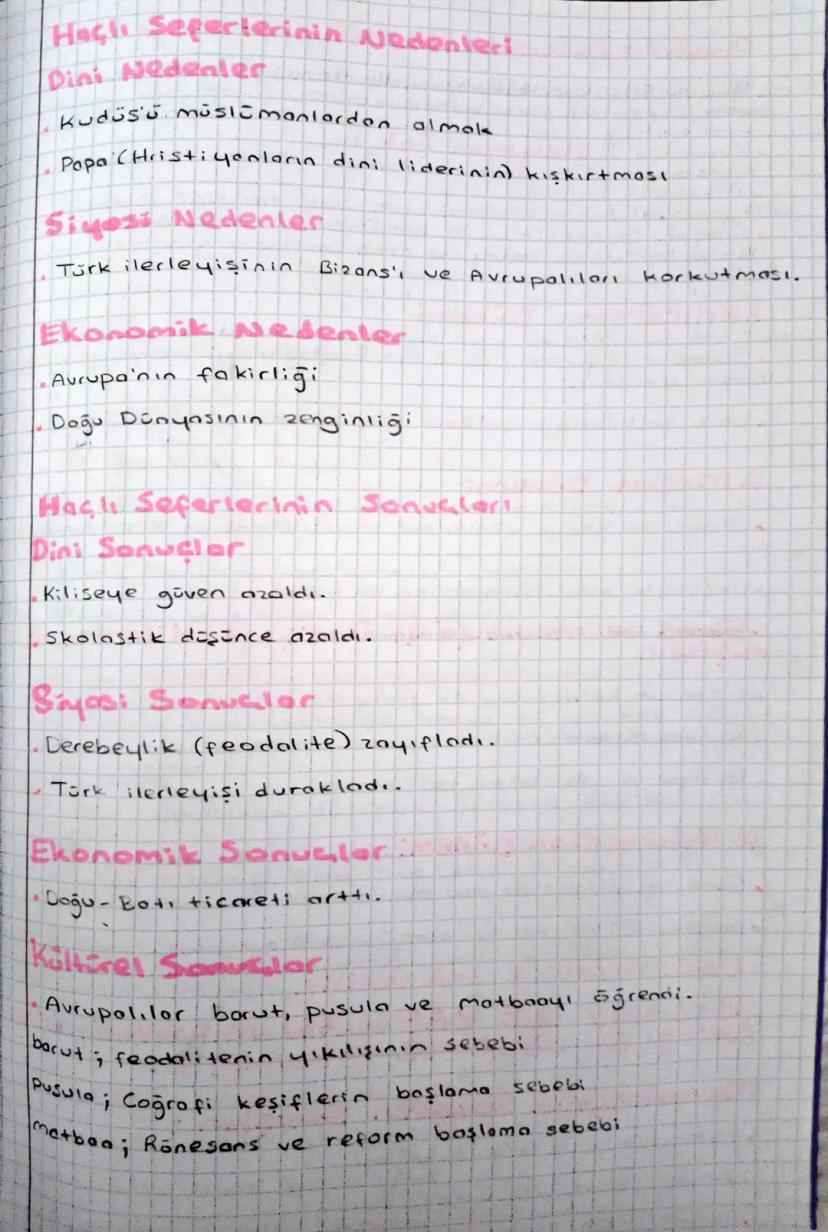 Haçlı Seferlerinin Nedenleri
Dini Nedenler
. Kudüs'ü müslümanlardan almak
. Papa'(Hristiyanların dini liderinin) kışkırtması
Siyasi Nedenler
. Türk ilerleyişinin Bizans'ı ve Avrupalıları korkutması.
Ekonomik Nedenler
. Avrupa'nın fakirliği
. Doğu Dünyasının zenginliği
Haçlı Seferlerinin Sonuçları
Dini Sonuçlar
. Kiliseye güven azaldı.
. Skolastik düşünce azaldı.
Siyasi Sonuçlar
. Derebeylik (feodalite) zayıfladı.
. Türk ilerleyişi durakladı.
Ekonomik Sonuçlar
. Doğu-Batı ticareti arttı.
Kültürel Sonuçlar
. Avrupalılar barut, pusula ve matbaayı öğrendi.
barut; feodalitenin yıkılışının sebebi
Pusula; Coğrafi keşiflerin başlama sebebi
Matbaa; Rönesans ve reform başlama sebebi